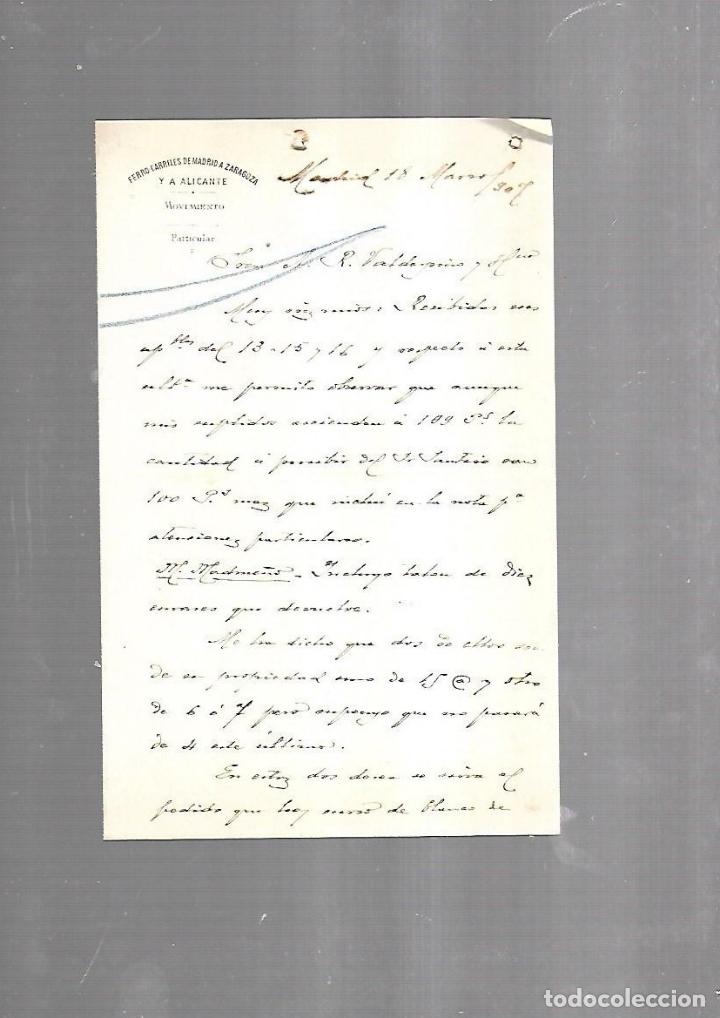 FERRO-CARRILES DE MADRID A ZARAGOZA
Y A ALICANTE
MOVIMIENTO
Particular
Madrid 18 Marzo 907
R. Valdespino y Hno
Muy Sres mios: Recibidas sus
del 13-15 y 16 y respecto á esta
ultª me permito observar que aunque
mis suplidos ascienden á 109 Ps. la
cantidad á percibir del Sr
100 Ps. mas que incluí en la nota pª
atenciones particulares.
M. Madrueño. Incluyo talon de diez
envases que devuelve.
Me ha dicho que dos de ellos son
de su propiedad uno de 15 @ y otro
de 6 ó 7 pero supongo que no pasará
de 4 este último.
En estos dos desea se sirva el
pedido que hoy curso de blanco de
todocoleccion.net